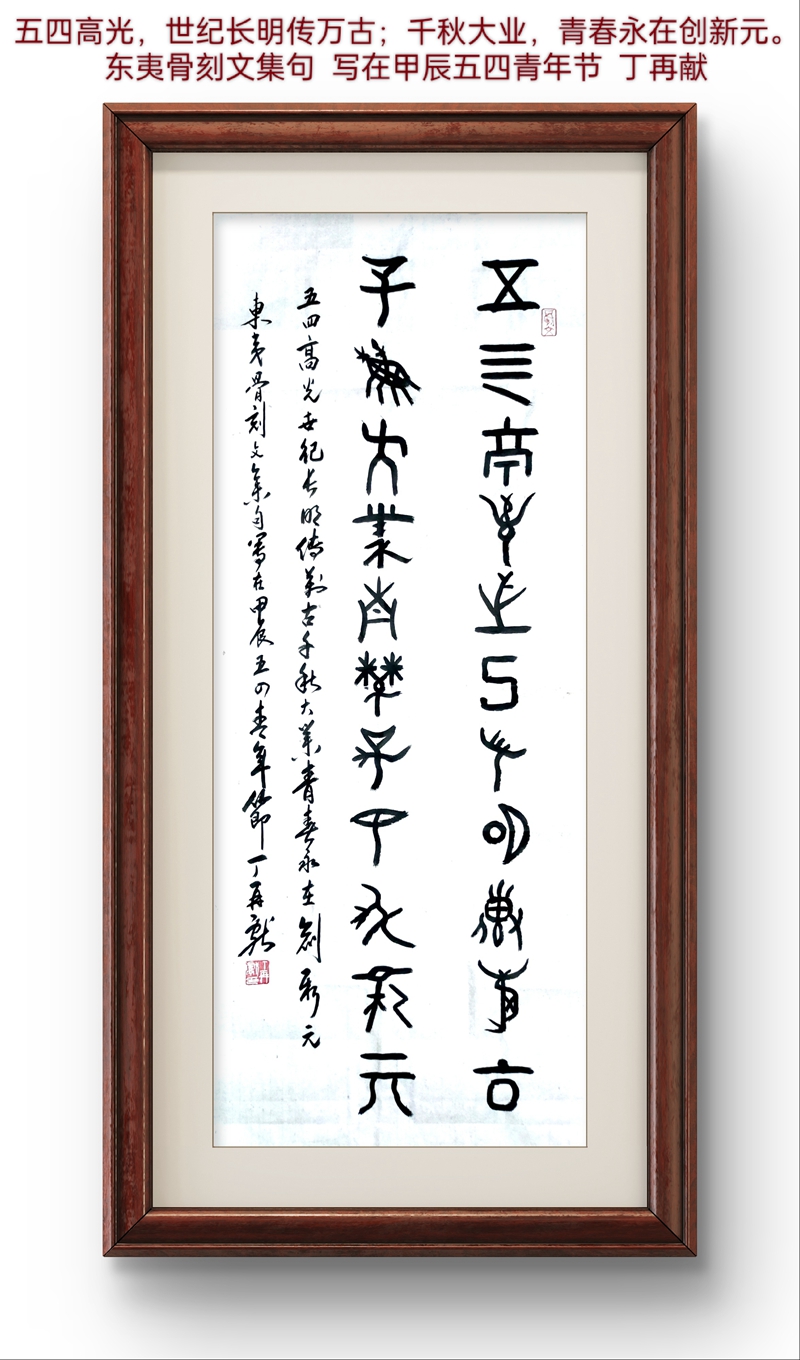 五四高光，世纪长明传万古；千秋大业，青春永在创新元。
东夷骨刻文集句 写在甲辰五四青年节 丁再献
五四高光世纪长明传万古
千秋大业青春永在创新元
五四高光世紀长明傳萬古千秋大業青春永在創新元
東夷骨刻文集句寫在甲辰五四青年節丁再献